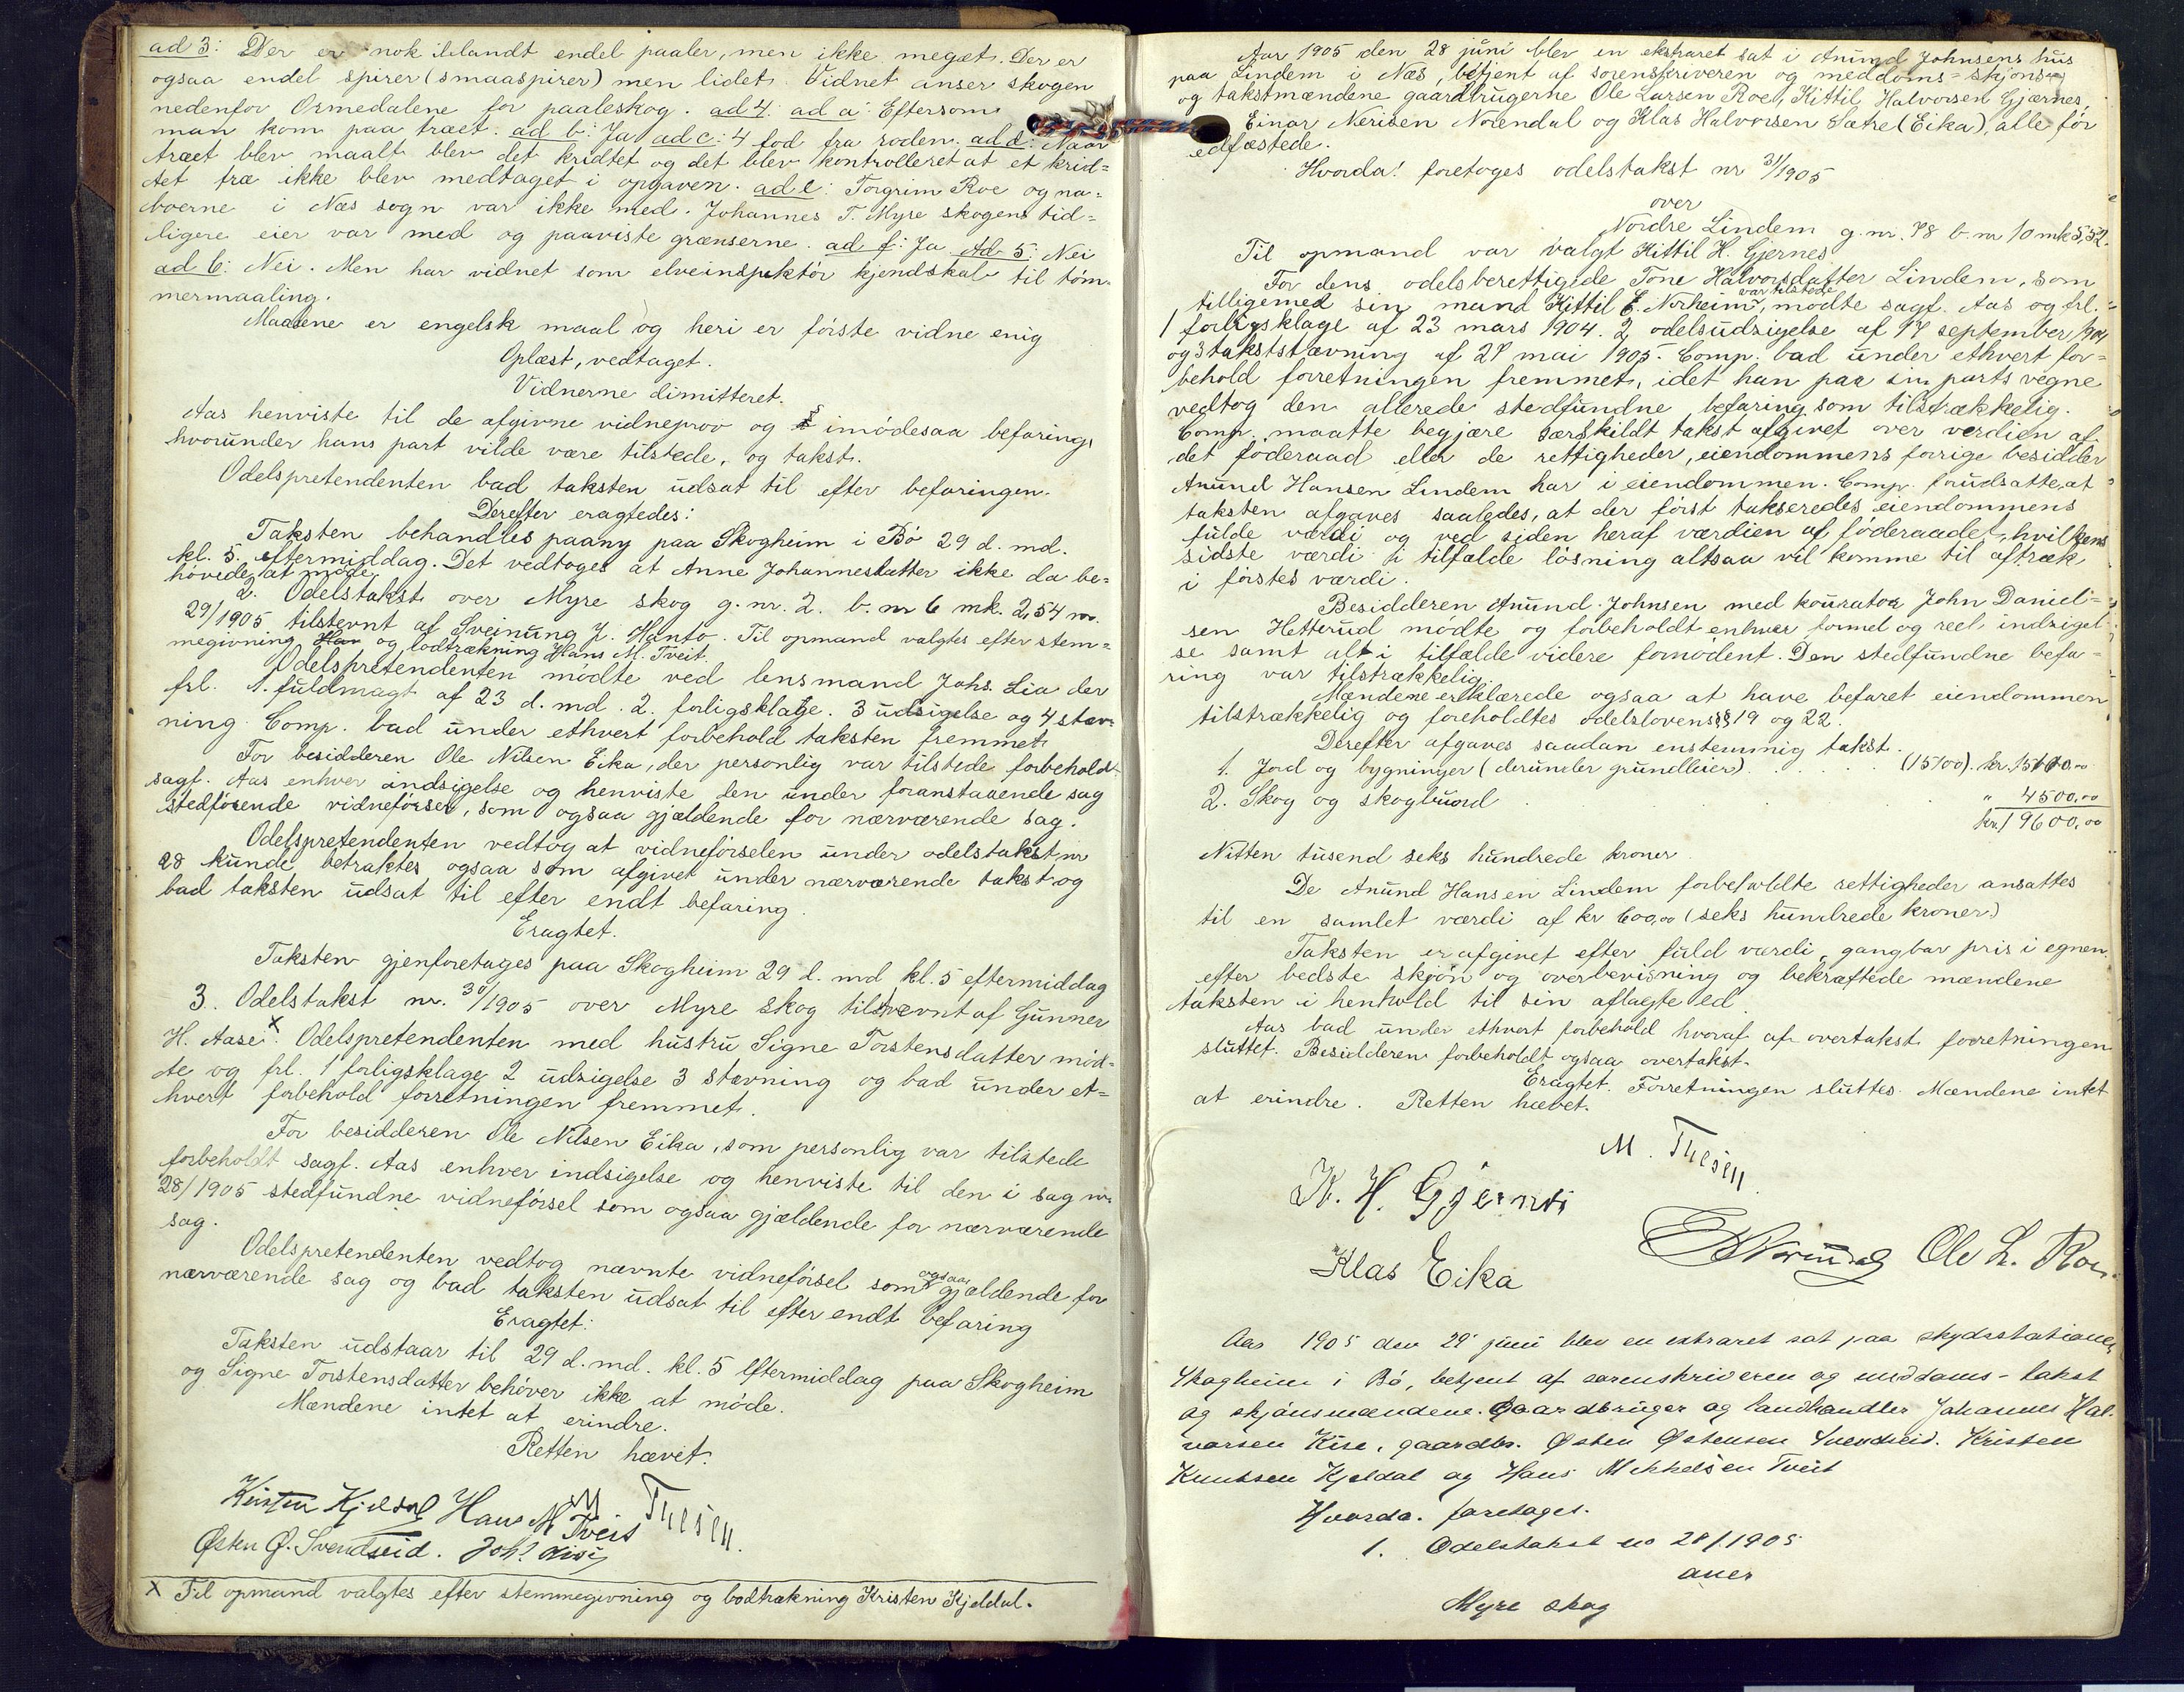 ad 3: Der er nok iblandt endel paaler, men ikke meget. Der er
ogsaa endel spirer (smaaspirer) men lidet. Vidnet anser skogen
nedenfor Ormedalene for paaleskog. ad 4. ad a: Eftersom
man kom paa træet. ad b: Ja ad c: 4 fod fra roden. ad d: Naar
træet blev maalt blev det kridtet og det blev kontrolleret at et krid=
tet træ ikke blev medtaget i opgaven. ad e: Torgrim Roe og na=
boerne i Næs sogn var ikke med. Johannes T. Myre skogens tid=
ligere eier var med og paaviste grænserne. ad f: Ja Ad 5: Nei
ad 6: Nei. Men har vidnet som elveinspektör kjendskab til töm-
mermaaling.
Maalene er engelsk maal og heri er förste vidne enig
Oplæst, vedtaget.
Vidnerne dimitteret.
Aas henviste til de afgivne vidneprov og imödesaa befaring,
hvorunder hans part vilde være tilstede, og takst.
Odelspretendenten bad taksten udsat til efter befaringen.
Derefter eragtedes:
Taksten behandles paany paa Skogheim i Bö 29 d. md.
kl. 5 eftermiddag. Det vedtoges at Anne Johannesdatter ikke da be=
hövede at möde.
2. Odelstakst over Myre skog g. nr. 2. b. nr 6 mk. 2,54 nr.
29/1905 tilstevnt af Sveinung J. Hanto. Til opmand valgtes efter stem=
megivning og lodtrækning Hans M. Tveit.
Odelspretendenten mödte ved lensmand Johs. Lia der
frl. 1. fuldmagt af 23 d. md. 2. forligsklage. 3 udsigelse og 4 stæv=
ning. Comp. bad under ethvert forbehold taksten fremmet.
For besidderen Ole Nilsen Eika, der personlig var tilstede forbeholdt
sagf. Aas enhver indsigelse og henviste den under foranstaaende sag
stedförende vidneförsel, som ogsaa gjældende for nærværende sag.
Odelspretendenten vedtog at vidneförselen under odelstakst nr
28 kunde betraktes ogsaa som afgivet under nærværende takst og
bad taksten udsat til efter endt befaring.
Eragtet.
Taksten gjenforetages paa Skogheim 29 d. md kl. 5 eftermiddag
3. Odelstakst nr. 30/1905 over Myre skog tilstævnt af Gunner
H. Aase x. Odelspretendenten med hustru Signe Torstensdatter möd=
te og frl. 1 forligsklage 2 udsigelse 3 stævning og bad under et=
hvert forbehold forretningen fremmet.
For besidderen Ole Nilsen Eika, som personlig var tilstede
forbeholdt sagf. Aas enhver indsigelse og henviste til den i sag nr.
28/1905 stedfundne vidneförsel som ogsaa gjældende for nærværende
sag.
Odelspretendenten vedtog nævnte vidneförsel som ogsaa gjældende for
nærværende sag og bad taksten udsat til efter endt befaring
Eragtet:
Taksten udstaar til 29 d. md. kl. 5 eftermiddag paa Skogheim
og Signe Torstensdatter behöver ikke at möde.
Mændene intet at erindre.
Retten hævet.
Kristen Kjeldal Hans M Tveit M Thesen.
Østen Ø. Svendseid. Joh.
x Til opmand valgtes efter stemmegivning og lodtrækning Kristen Kjeldal.
Aar 1905 den 28 juni blev en ekstraret sat i Anund Johnsens hus
paa Lindem i Næs, betjent af sorenskriveren og meddoms= skjöns=
og takstmændene gaardbrugerne Ole Larsen Roe, Kittil Halvorsen Gjærnes,
Einar Nerisen Norendal og Klas Halvorsen Sætre (Eika), alle för
edfæstede.
Hvorda! foretoges odelstakst nr 31/1905
over
Nordre Lindem g. nr. 78 b nr 10 mk 5,52.
Til opmand var valgt Kittil H. Gjernes
For dens odelsberettigede Tone Halvorsdatter Lindem, som
tilligemed sin mand Kittil E. Norheim var tilstede, mödte sagf. Aas og frl.
1 forligsklage af 23 mars 1904. 2 odelsudsigelse af 17 september 1904
og 3 takststævning af 27 mai 1905. Comp. bad under ethvert for=
behold forretningen fremmet, idet han paa sin parts vegne
vedtog den allerede stedfundne befaring som tilstrækkelig.
Comp. maatte begjære særskildt takst afgivet over verdien af
det föderaad eller de rettigheder, eiendommens forrige besidder
Anund Hansen Lindem har i eiendommen. Comp. forudsatte, at
taksten afgaves saaledes, at der först takseredes eiendommens
fulde værdi og ved siden heraf værdien af föderaadet, hvilken
sidste værdi i tilfælde lösning altsaa vil komme til aftræk
i förstes værdi.
Besidderen Anund Johnsen med kourator John Daniel=
sen Hetterud mödte og forbeholdt enhver formel og reel indsigel
se samt alt i tilfælde videre fornödent. Den stedfundne befa=
ring var tilstrækkelig.
Mændene erklærede ogsaa at have befaret eiendommen
tilstrækkelig og foreholdtes odelslovens §§ 19 og 22.
Derefter afgaves saadan enstemmig takst.
1. Jord og bygninger (derunder grundleier) . . . . . (15100). kr. 15100.00
2. Skog og skogbund . . . " 4500,00
kr. 19600,00
Nitten tusend seks hundrede kroner.
De Anund Hansen Lindem forbeholdte rettigheder ansattes
til en samlet værdi af kr 600,00 (seks hundrede kroner)
Taksten er afgivet efter fuld værdi, gangbar pris i egnen,
efter bedste skjön og overbevisning og bekræftede mændene
taksten i henhold til sin aflagte ed
Aas bad under ethvert forbehold hvoraf af overtakst forretningen
sluttet. Besidderen forbeholdt ogsaa overtakst.
Eragtet. Forretningen sluttes. Mændene intet
at erindre. Retten hævet.
M. Thesen.
K. H. Gjernes
Ole L. Roe.
Klas Eika
Aar 1905 den 29 juni blev en extraret sat paa skydsstationen
Skogheim i Bö, betjent af sorenskriveren og meddoms- takst
og skjönsmændene. Gaardbruger og landhandler Johannes Hal-
vorsen Kise, gaardbr. Østen Østensen Svendseid. Kristen
Knutsen Kjeldal og Hans Mikkelsen Tveit
Hvorda. foretoges.
1. Odelstakst no 28/1905
over
Myre skog